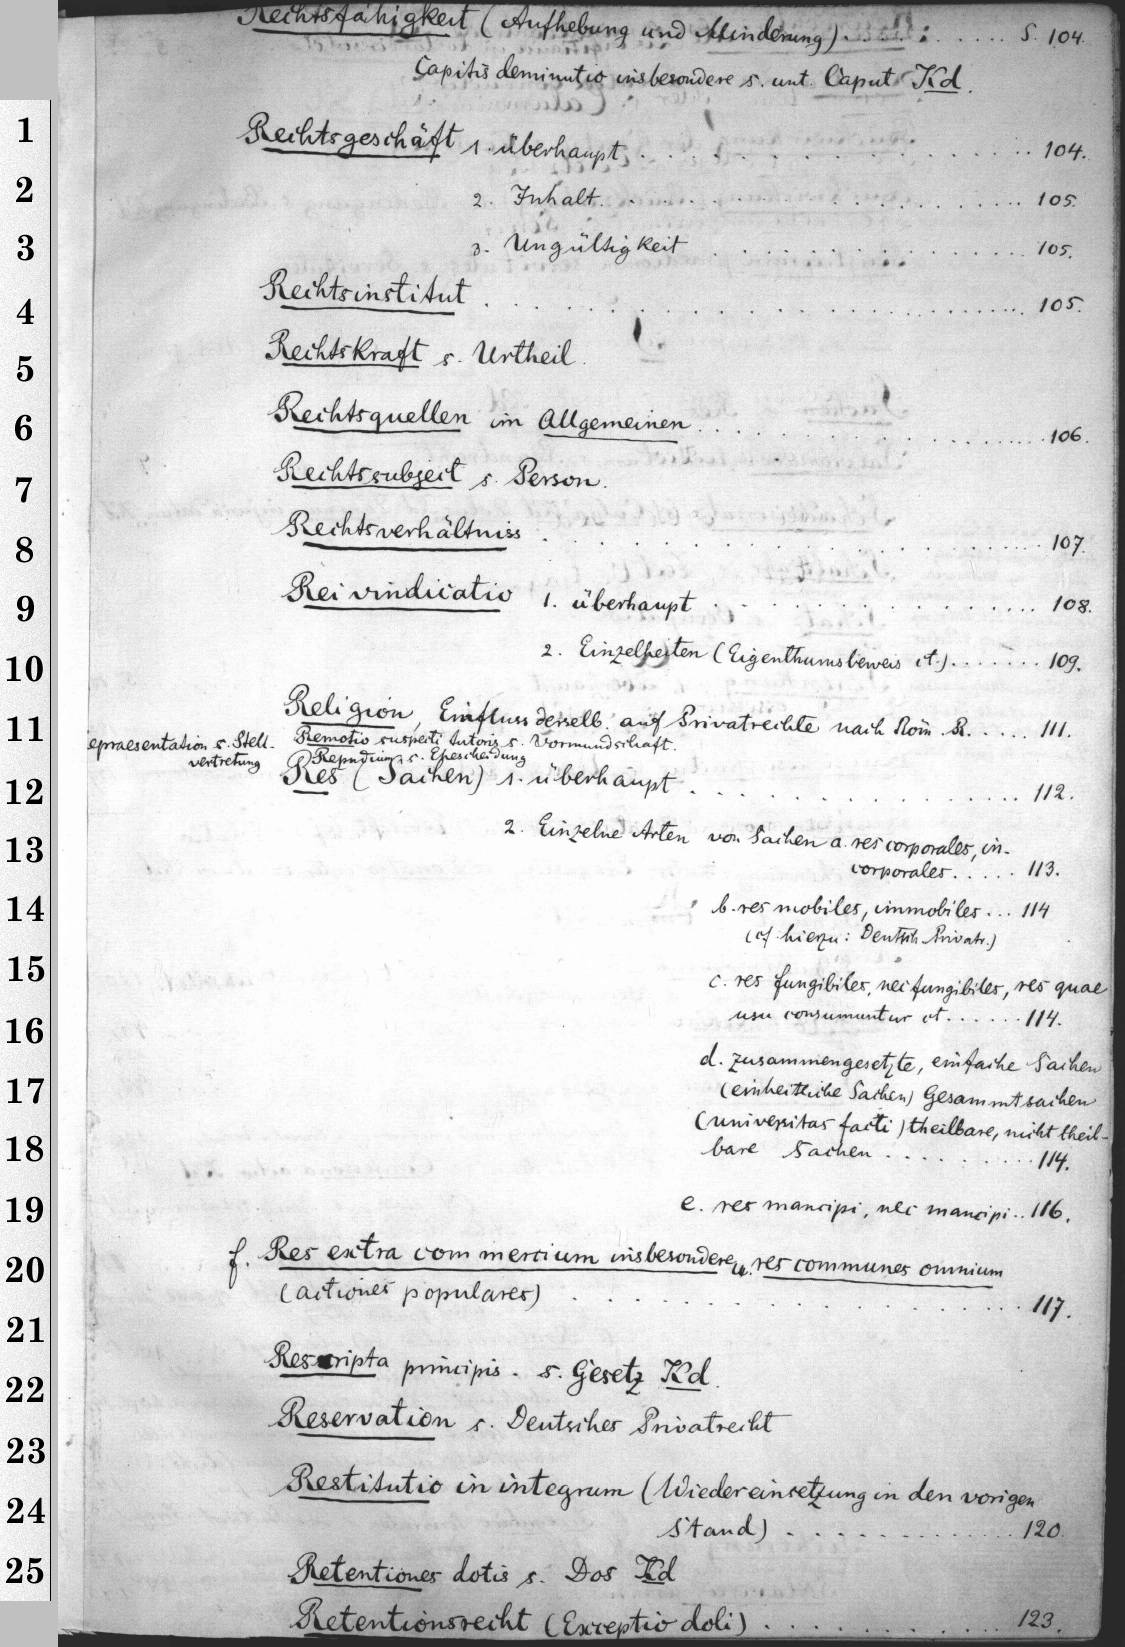 Rechtsfähigkeit (Aufhebung und Minderung) . . . . . . . . S. 104.
Capitis deminutio insbesondere s. unt. Caput Kd.
1
Rechtsgeschäft 1. überhaupt . . . . . . . . . . . . 104.
2
2. Inhalt . . . . . . . . . . . . 105.
3
3. Ungültigkeit . . . . . . . . . . . . 105.
4
Rechtsinstitut . . . . . . . . . . . . 105.
5
Rechtskraft s. Urtheil.
6
Rechtsquellen im Allgemeinen . . . . . . . . . . . . 106.
7
Rechtssubject s. Person.
8
Rechtsverhältniss . . . . . . . . . . . . 107.
9
Rei vindicatio 1. überhaupt . . . . . . . . . . . . 108.
10
2. Einzelheiten (Eigenthumsbeweis ct.) . . . . . . . 109.
11
Religion, Einfluss derselb. auf Privatrechte nach Röm. R. . . . . . 111.
Remotio suspecti tutoris s. Vormundschaft.
epraesentation s. Stell-
vertretung
Repudium s. Ehescheidung
12
Res (Sachen) 1. überhaupt . . . . . . . . . . . . 112.
13
2. Einzelne Arten von Sachen a. res corporales, in-
corporales . . . . . 113.
14
b. res mobiles, immobiles . . . 114
(cf. hierzu: Deutsch. Privatr.)
15
c. res fungibiles, nec fungibiles, res quae
16
usu consumuntur ct . . . . . . 114.
17
d. zusammengesetzte, einfache Sachen
(einheitliche Sachen) Gesammtsachen
(universitas facti) theilbare, nicht theil-
18
bare Sachen . . . . . . . . . 114.
19
e. res mancipi, nec mancipi . . 116.
20
f. Res extra commercium insbesondere u. res communes omnium
(actiones populares) . . . . . . . . . . . . 117.
21
22
Rescripta principis. s. Gesetz Kd.
Reservation s. Deutsches Privatrecht
23
24
Restitutio in integrum (Wiedereinsetzung in den vorigen
Stand) . . . . . . . . . . . . 120.
25
Retentiones dotis s. Dos Kd
Retentionsrecht (Exceptio doli) . . . . . . . . . . . . 123.